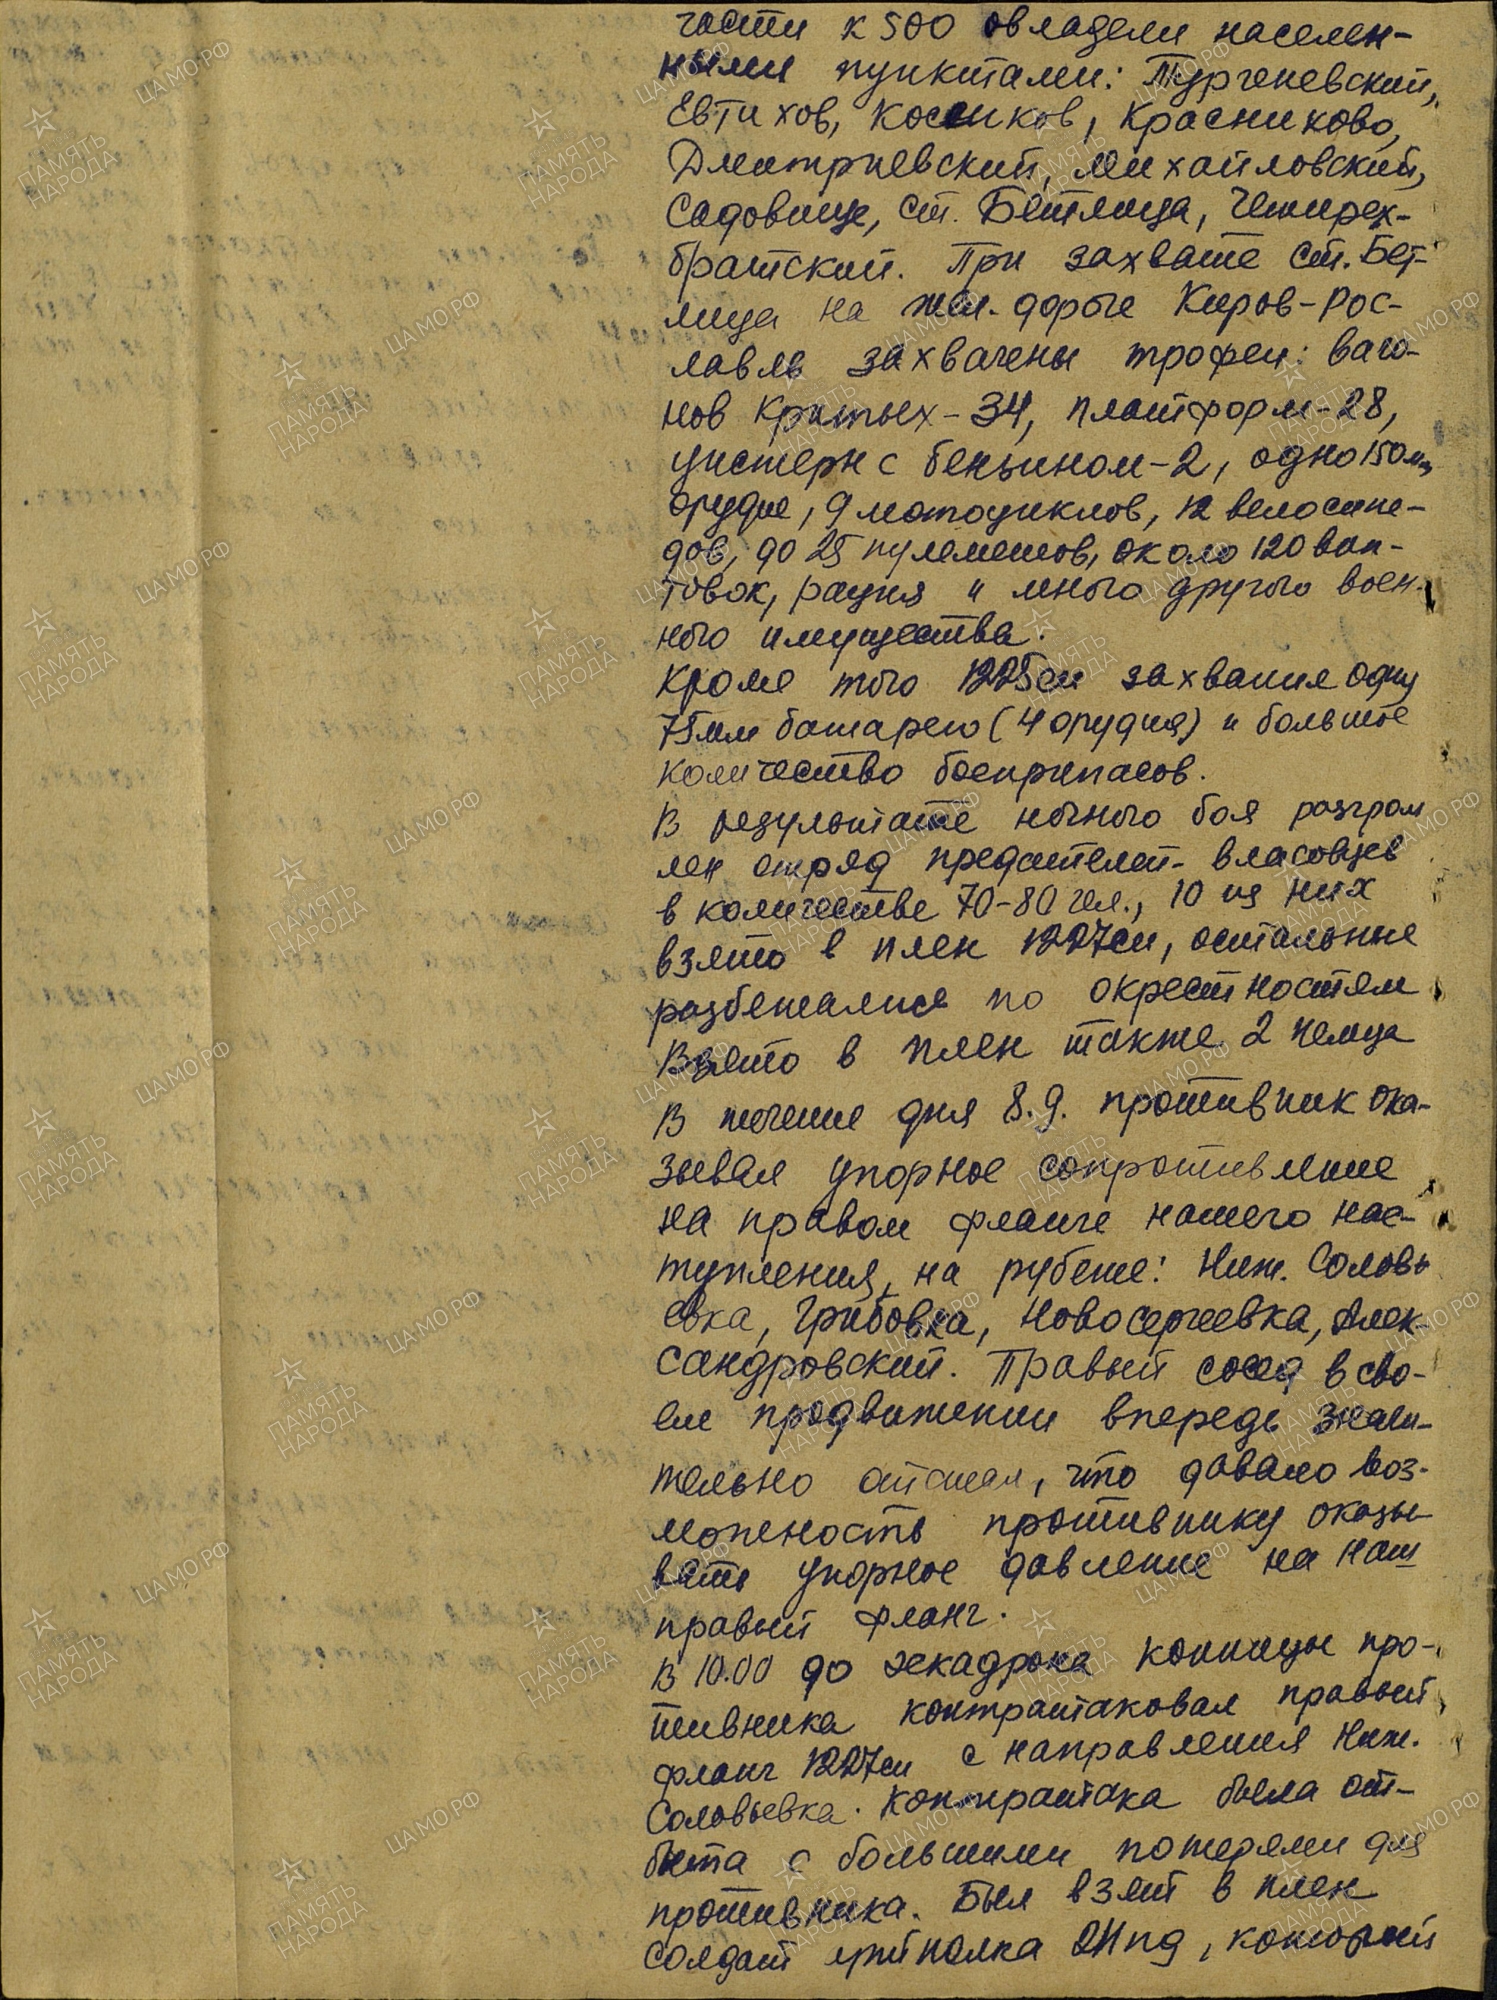 части к 5 00 овладели населен-
ными пунктами: Тургеневский,
Евтихов, Косиков, Красниково,
Дмитриевский, Михайловский,
Садовище, ст. Бетлица, Четырех-
братский. При захвате ст. Бет-
лица на жел. дороге Киров-Рос-
лавль захвачены трофеи: ваго-
нов крытых - 34, платформ - 28,
цистерн с бензином - 2, одно 150мм
орудие, 9 мотоциклов, 12 велосипе-
дов, до 25 пулеметов, около 120 вин-
товок, рация и много другого воен-
ного имущества.
Кроме того 1225сп захватил одну
75мм батарею (4 орудия) и большое
количество боеприпасов.
В результате ночного боя разгром
лен отряд предателей - власовцев
в количестве 70-80 чел., 10 из них
взято в плен 1227сп, остальные
разбежались по окрестностям
Взято в плен также 2 немца
В течение дня 8.9. противник ока-
зывал упорное сопротивление
на правом фланге нашего нас-
тупления, на рубеже: Ниж. Соловь
евка, Грибовка, Новосергеевка, Алек-
сандровский. Правый сосед в сво-
ем продвижении вперед значи-
тельно отстал, что давало воз-
можность противнику оказы-
вать упорное давление на наш
правый фланг.
В 10.00 до эскадрона конницы про-
тивника контратаковал правый
фланг 1227сп с направления Ниж.
Соловьевка. Контратака была от-
бита с большими потерями для
противника. Был взят в плен
солдат артполка 211пд, который
ПАМЯТЬ НАРОДА
ЦАМО.РФ